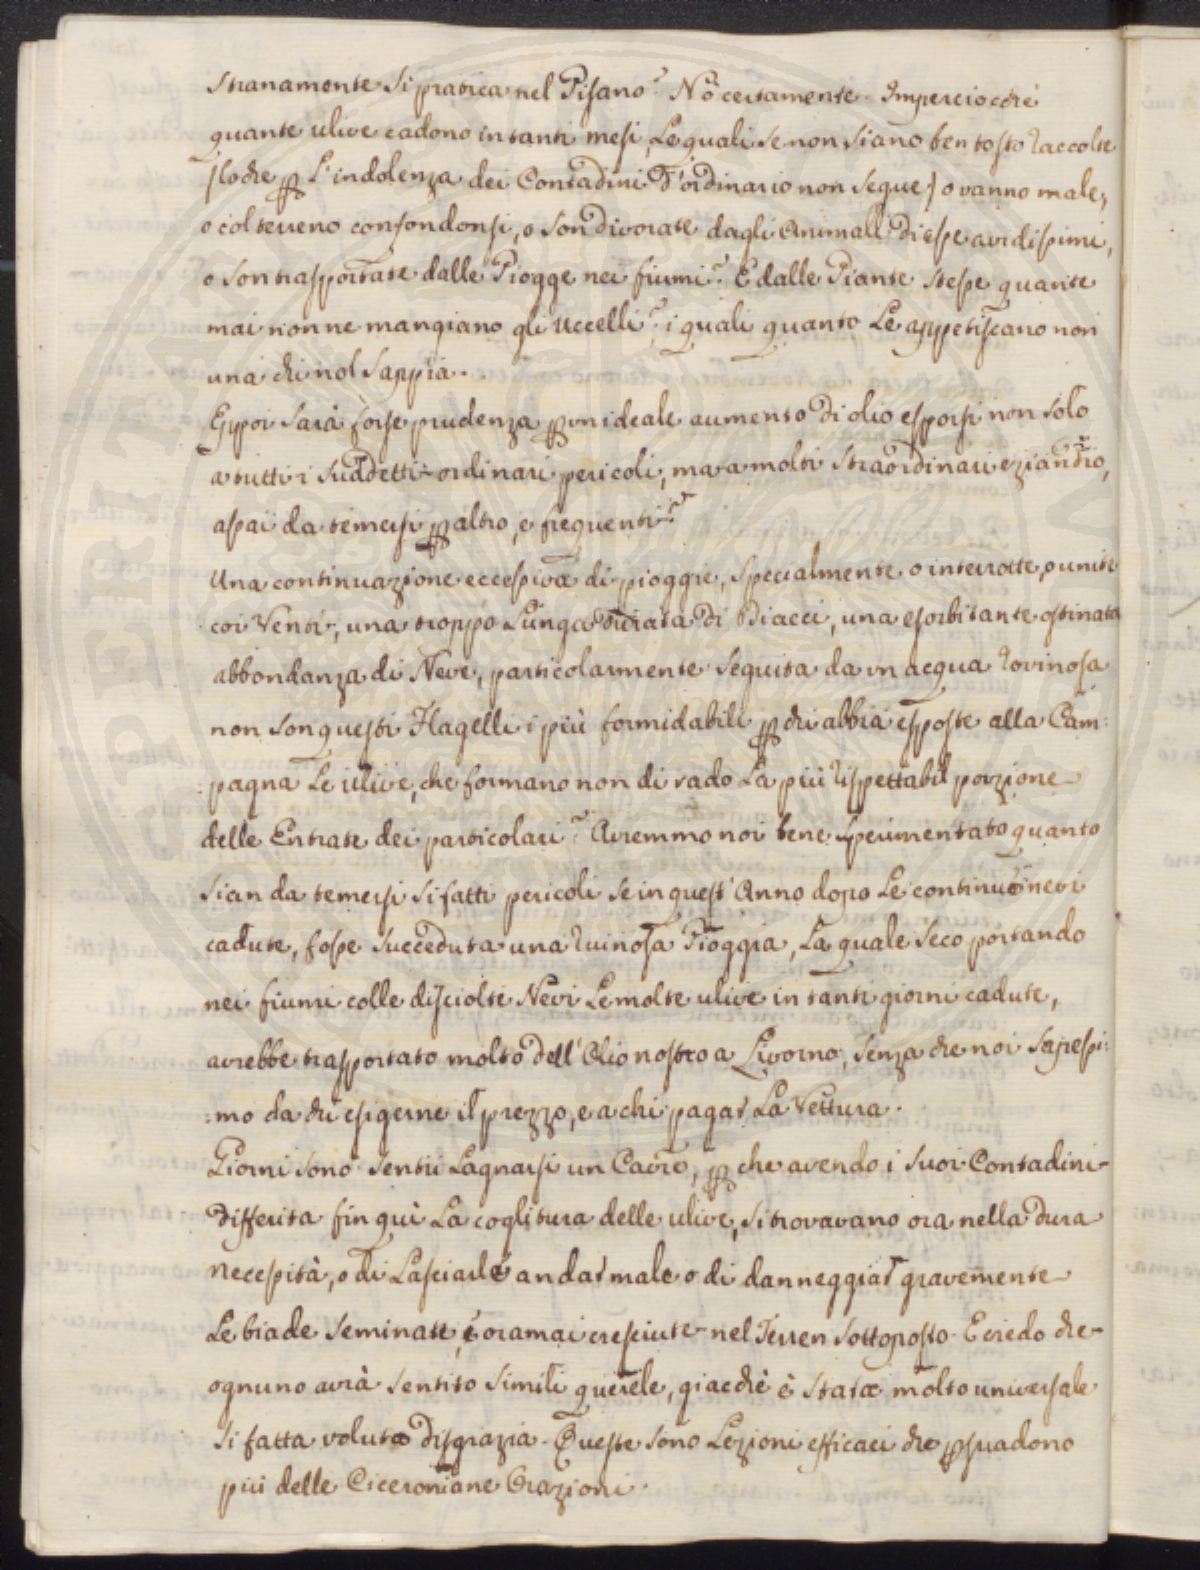 stranamente si pratica nel Pisano? Nõ certamente. Imperciocchè
quante ulive cadono in tanti mesi, le quali se non siano ben tosto raccolte
/loche ꝑ l'indolenza dei Contadini d'ordinario non segue/ o vanno male,
o col terreno confondonsi, o son divorate dagli Animali di esse avidissimi,
o son trasportate dalle Piogge nei fiumi? E dalle Piante stesse quante
mai non ne mangiano gli uccelli? i quali quanto le appetiscano non
v'ha chi nol sappia.
Eppoi sarà forse prudenza ꝑ un ideale aumento di olio esporsi non solo
a tutti i suddetti ordinari pericoli, ma a molti straordinari eziandio,
assai da temersi ꝑ altro, e frequenti?
Una continuazione eccessiva di pioggie, specialmente o interrotte, o unite
coi Venti, una troppo lunga durata di Diacci, una esorbitante ostinata
abbondanza di Neve, particolarmente seguita da un acqua rovinosa
non son questi Flagelli i più formidabili ꝑ chi abbia esposte alla Cam:
:pagna le ulive, che formano non di rado la più rispettabil porzione
delle Entrate dei particolari? Avremmo noi bene sperimentato quanto
sian da temersi si fatti pericoli se in quest'Anno dopo le continue nevi
cadute, fosse succeduta una ruinosa Pioggia, la quale seco portando
nei fiumi colle disciolte Nevi le molte ulive in tanti giorni cadute,
avrebbe trasportato molto dell'Olio nostro a Livorno, senza che noi sapessi:
:mo da chi esigerne il prezzo, e a chi pagar la Vettura.
Giorni sono sentii lagnarsi un Cavre, ꝑ che avendo i suoi Contadini
differita fin quì la coglitura delle ulive, si trovavano ora nella dura
necessità, o di lasciarle andar male o di danneggiar gravemente
le biade seminate, e oramai cresciute nel Terren sottoposto. E credo che
ognuno avrà sentito simili querele, giacchè è stata molto universale
si fatta voluta disgrazia. Queste sono lezioni efficaci che ꝑsuadono
più delle Ciceroniane Orazioni.